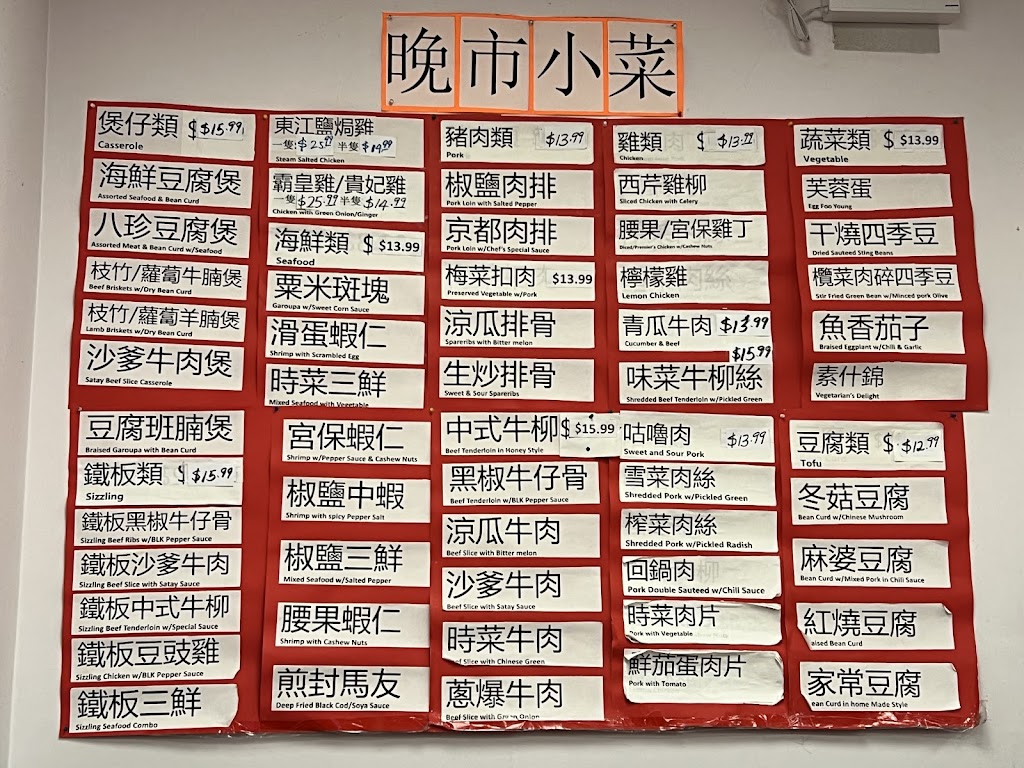 晚市小菜
煲仔類 $ $15.99
Casserole
海鮮豆腐煲
Assorted Seafood & Bean Curd
八珍豆腐煲
Assorted Meat & Bean Curd w/Seafood
枝竹/蘿蔔牛腩煲
Beef Briskets w/Dry Bean Curd
枝竹/蘿蔔羊腩煲
Lamb Briskets w/Dry Bean Curd
沙爹牛肉煲
Satay Beef Slice Casserole
豆腐班腩煲
Braised Garoupa with Bean Curd
鐵板類 $ $15.99
Sizzling
鐵板黑椒牛仔骨
Sizzling Beef Ribs w/BLK Pepper Sauce
鐵板沙爹牛肉
Sizzling Beef Slice with Satay Sauce
鐵板中式牛柳
Sizzling Beef Tenderloin w/Special Sauce
鐵板豆豉雞
Sizzling Chicken w/BLK Pepper Sauce
鐵板三鮮
Sizzling Seafood Combo
東江鹽焗雞
一隻:$25.99 半隻 $14.99
Steam Salted Chicken
霸皇雞/貴妃雞
一隻$25.99 半隻$14.99
Chicken with Green Onion/Ginger
海鮮類 $ $13.99
Seafood
粟米斑塊
Garoupa w/Sweet Corn Sauce
滑蛋蝦仁
Shrimp with Scrambled Egg
時菜三鮮
Mixed Seafood with Vegetable
宮保蝦仁
Shrimp w/Pepper Sauce & Cashew Nuts
椒鹽中蝦
Shrimp with spicy Pepper Salt
椒鹽三鮮
Mixed Seafood w/Salted Pepper
腰果蝦仁
Shrimp with Cashew Nuts
煎封馬友
Deep Fried Black Cod/Soya Sauce
豬肉類 $13.99
Pork
椒鹽肉排
Pork Loin with Salted Pepper
京都肉排
Pork Loin w/Chef's Special Sauce
梅菜扣肉 $13.99
Preserved Vegetable w/Pork
涼瓜排骨
Spareribs with Bitter melon
生炒排骨
Sweet & Sour Spareribs
中式牛柳 $ $15.99
Beef Tenderloin in Honey Style
黑椒牛仔骨
Beef Tenderloin w/BLK Pepper Sauce
涼瓜牛肉
Beef Slice with Bitter melon
沙爹牛肉
Beef Slice with Satay Sauce
時菜牛肉
Slice with Chinese Green
蔥爆牛肉
Beef Slice with Green Onion
雞類 $ $13.99
Chicken
西芹雞柳
Sliced Chicken with Celery
腰果/宮保雞丁
Diced/Premier's Chicken w/Cashew Nuts
檸檬雞
Lemon Chicken
青瓜牛肉 $13.99
Cucumber & Beef
$15.99
味菜牛柳絲
Shredded Beef Tenderloin w/Pickled Green
咕嚕肉 $13.99
Sweet and Sour Pork
雪菜肉絲
Shredded Pork w/Pickled Green
榨菜肉絲
Shredded Pork w/Pickled Radish
回鍋肉
Pork Double Sauteed w/Chili Sauce
時菜肉片
Pork with Vegetable
鮮茄蛋肉片
Pork with Tomato
蔬菜類 $ $13.99
Vegetable
芙蓉蛋
Egg Foo Young
干燒四季豆
Dried Sauteed Sting Beans
欖菜肉碎四季豆
Stir Fried Green Bean w/Minced pork Olive
魚香茄子
Braised Eggplant w/Chili & Garlic
素什錦
Vegetarian's Delight
豆腐類 $ $12.99
Tofu
冬菇豆腐
Bean Curd w/Chinese Mushroom
麻婆豆腐
Bean Curd w/Mixed Pork in Chili Sauce
紅燒豆腐
aised Bean Curd
家常豆腐
ean Curd in home Made Style